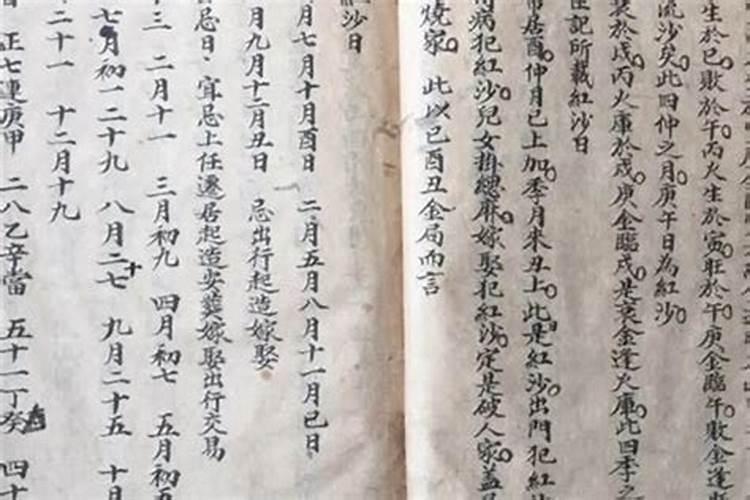 生於巳敗於午丙火生於寅旺於午庚金臨午敗金逢
流沙矣此四仲之月庚午日為紅沙
於戌丙火庫於戌庚金臨戌是衰金逢火庫此四季之
記所載紅沙日
居酉仲月巳上加季月來丑上此是紅沙出門犯紅
病犯紅沙兒女掛總麻嫁娶犯紅沙定是破人家蓋
燒家 此以巳酉丑金局而言
紅沙日
月七月十月酉日 二月五月八月十一月巳日
月九月十二月丑日 忌出行起造嫁娶
忌日 宜忌上任遷居起造安葬嫁娶出行交易
十三 二月十一 三月初九 四月初七 五月初五
七月初一二十九 八月二十七 九月二十五 十月
二十一 十二月十九
正七連庚甲 二八乙辛當 五十一丁癸 四十